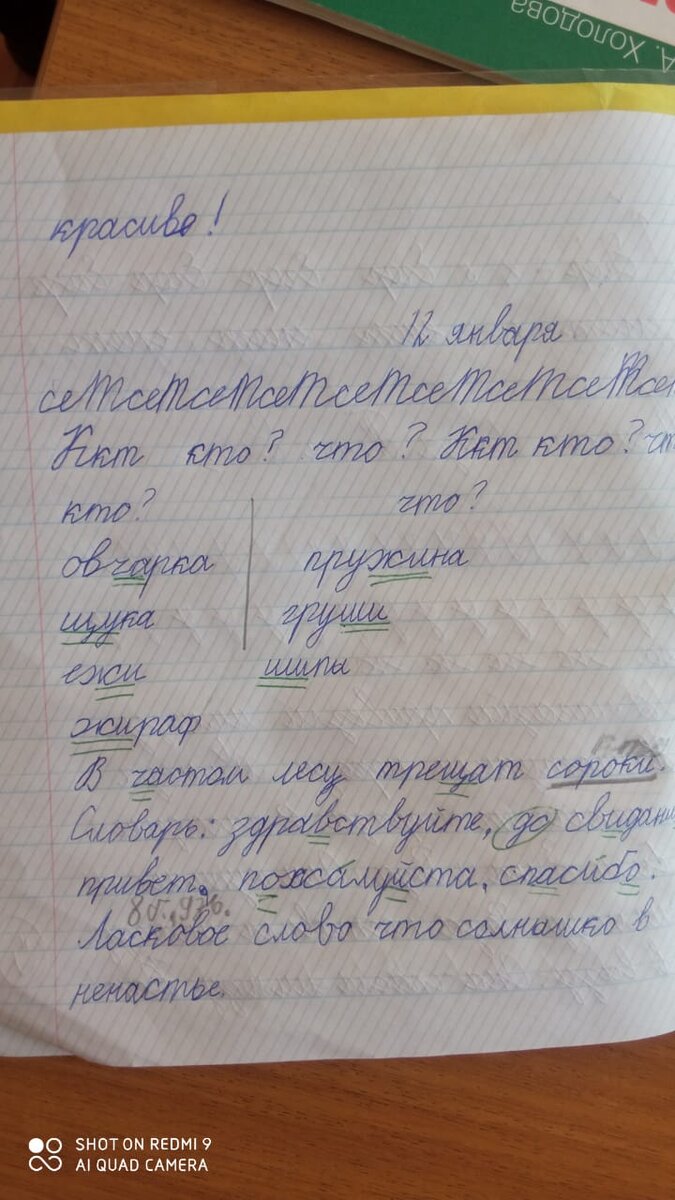 А. Холодова
красиво!
12 января
сеТсеТсеТсеТсеТсеТсеТсеТсе
Ккт кто? что? Ккт кто? чт
кто? что?
овчарка пружина
щука груши
ежи шипы
жираф
В частом лесу трещат сороки.
Словарь: здравствуйте, до свидани
привет, пожалуйста, спасибо.
8 б., 9 зв.
Ласковое слово что солнашко в
ненастье.
SHOT ON REDMI 9
AI QUAD CAMERA